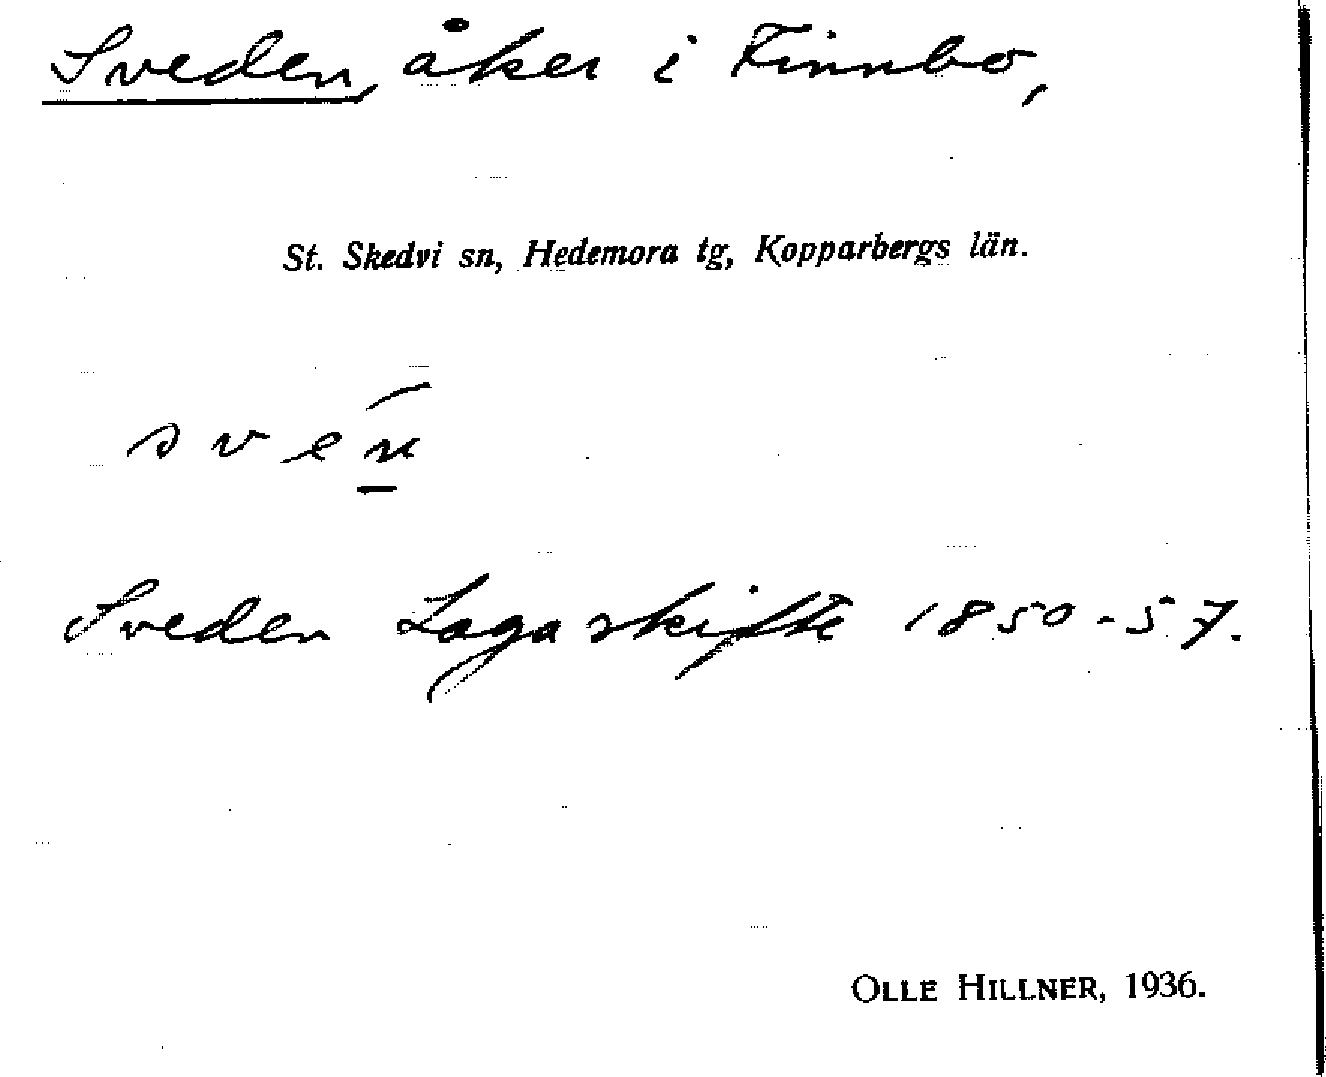 Sveden, åker i Finnbo,
St. Skedvi sn, Hedemora tg, Kopparbergs län.
svén
Sveden Lagaskifte 1850-57.
OLLE HILLNER, 1936.